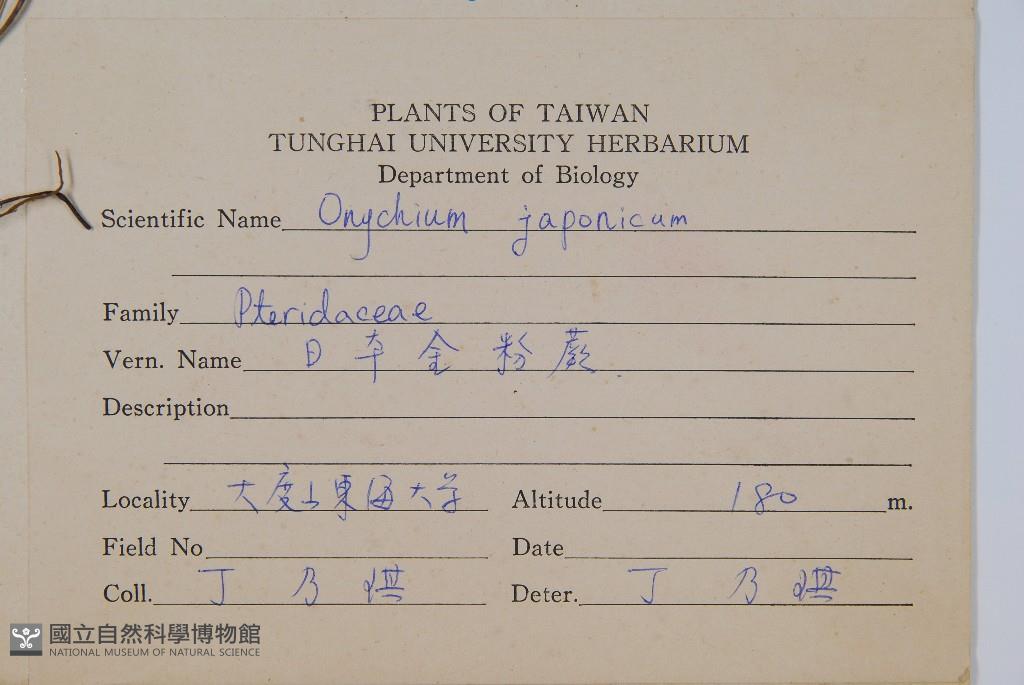 PLANTS OF TAIWAN
TUNGHAI UNIVERSITY HERBARIUM
Department of Biology
Scientific Name Onychium japonicum
Family Pteridaceae
Vern. Name 日本金粉蕨
Description
Locality 大度山東海大学 Altitude 180 m.
Field No Date
Coll. 丁乃 Deter. 丁乃
國立自然科學博物館
NATIONAL MUSEUM OF NATURAL SCIENCE